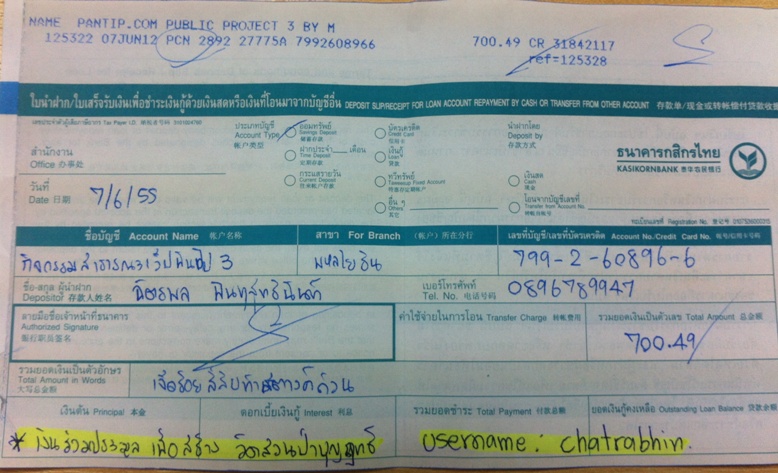 NAME PANTIP.COM PUBLIC PROJECT 3 BY M
125322 07JUN12 PCN 2892 27775A 7992608966 700.49 CR 31842117
ref=125328
ใบนำฝาก/ใบเสร็จรับเงินเพื่อชำระเงินกู้ด้วยเงินสดหรือเงินที่โอนมาจากบัญชีอื่น DEPOSIT SLIP/RECEIPT FOR LOAN ACCOUNT REPAYMENT BY CASH OR TRANSFER FROM OTHER ACCOUNT 存款单/现金或转帐偿付贷款收据
สำนักงาน
Office 办事处
วันที่
Date 日期 7/6/55
ประเภทบัญชี
Account Type
帐户类型
ออมทรัพย์
Savings Deposit
ฝากประจำ___เดือน
Time Deposit
กระแสรายวัน
Current Deposit
บัตรเครดิต
Credit Card
เงินกู้
Loan
ทวีทรัพย์
Taweesup Fixed Account
อื่น ๆ
Others
其它
นำฝากโดย
Deposit by
存款方式
เงินสด
Cash
现金
โอนจากบัญชีเลขที่
Transfer from Account No.
ธนาคารกสิกรไทย
KASIKORNBANK 泰华农民银行
ชื่อบัญชี Account Name 帐户名称 สาขา For Branch (帐户) 所在分行 เลขที่บัญชี/เลขที่บัตรเครดิต Account No./Credit Card No. 帐号/信用卡号码
กิจกรรมสาธารณะเว็ปพันทิป 3 พหลโยธิน 799-2-60896-6
ชื่อ-สกุล ผู้นำฝาก
Depositor 存款人姓名 เบอร์โทรศัพท์
Tel. No. 电话号码 0896789947
ลายมือชื่อเจ้าหน้าที่ธนาคาร
Authorized Signature
银行职员签名
ค่าใช้จ่ายในการโอน Transfer Charge 转帐费用 รวมยอดเงินเป็นตัวเลข Total Amount 总金额
700.49
รวมยอดเงินเป็นตัวอักษร
Total Amount in Words
大写总金额 เจ็ดร้อย
เงินต้น Principal 本金 ดอกเบี้ยเงินกู้ Interest 利息 รวมยอดชำระ Total Payment 付款总额 ยอดเงินกู้คงเหลือ Outstanding Loan Balance 贷款余额
* เงินร่วมประมูล เพื่อสร้าง วัดสวนป่าบุญฤทธิ์ username: chatrabhin.